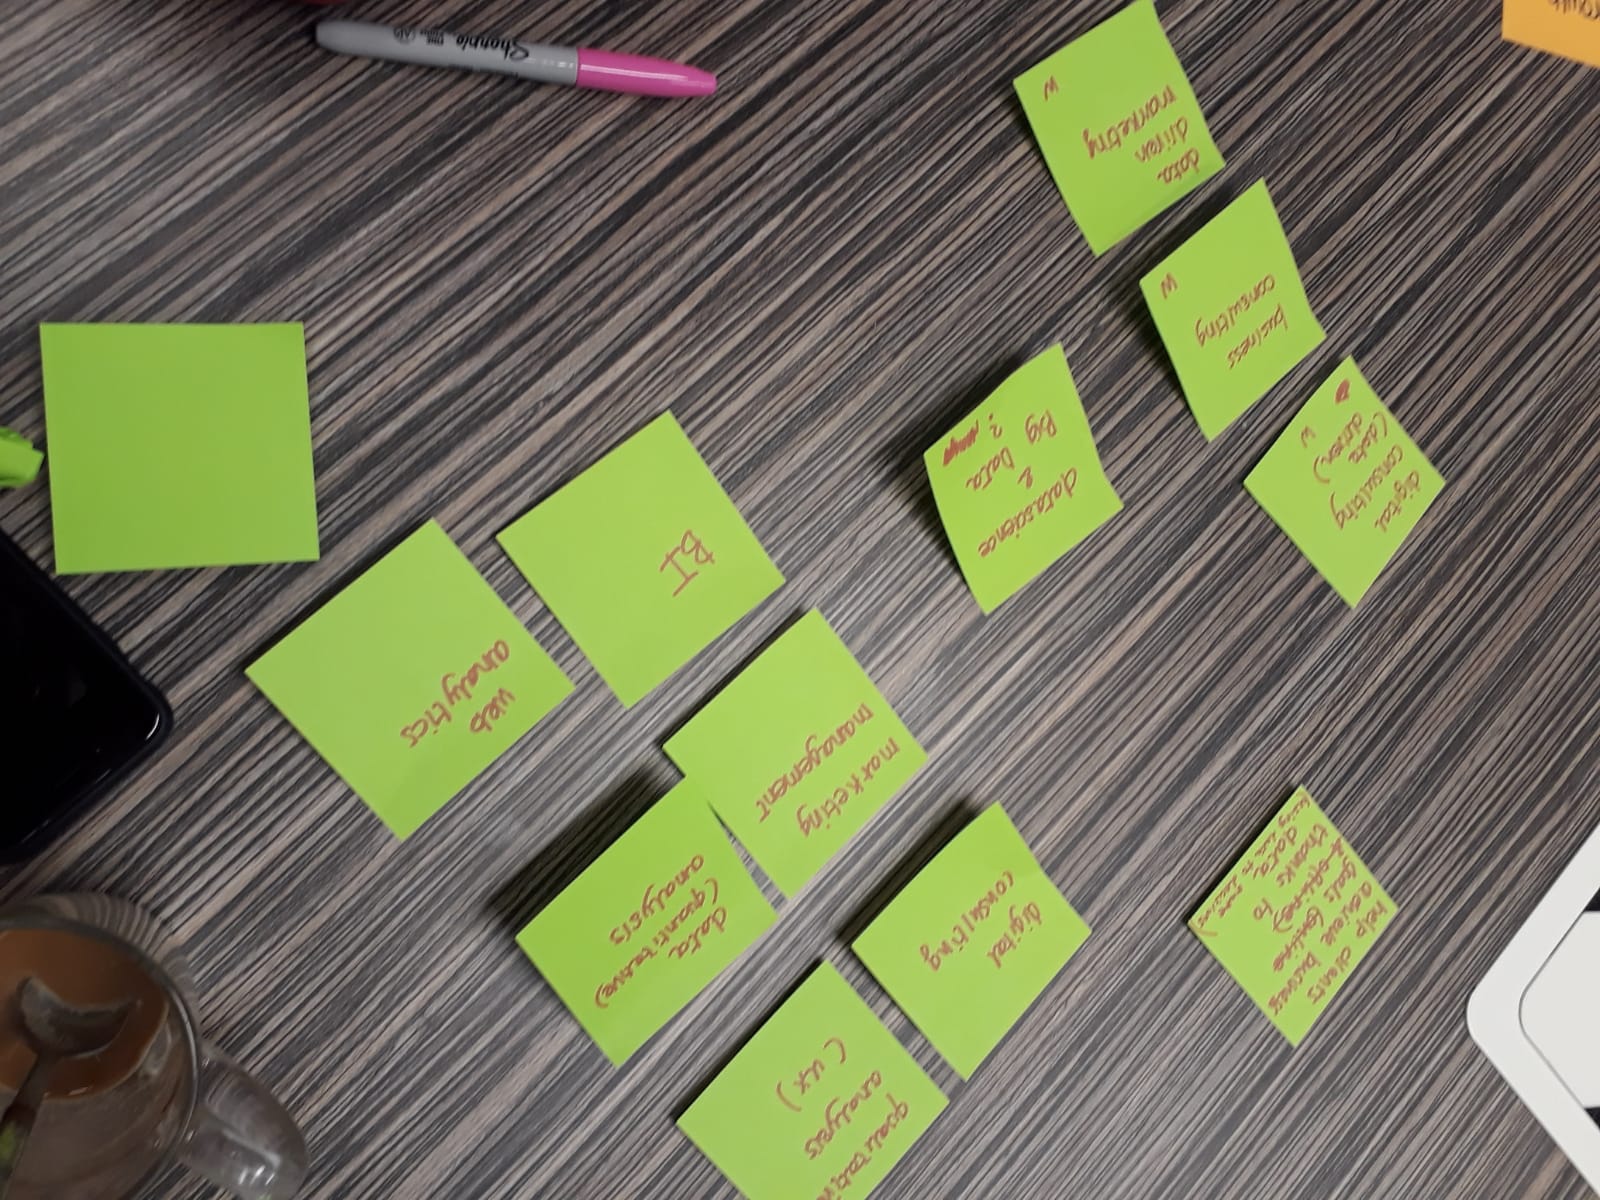 Sharpie
data
driven
marketing
W
business
consulting
W
digital
consulting
(data
driven)
W
datascience
&
Big Data
?
BI
web
analytics
marketing
management
data
(quantitative)
analysis
digital
consulting
qualitative
analysis
(UX)
help clients
achieve business
goals (online
& offline)
thanks to
data